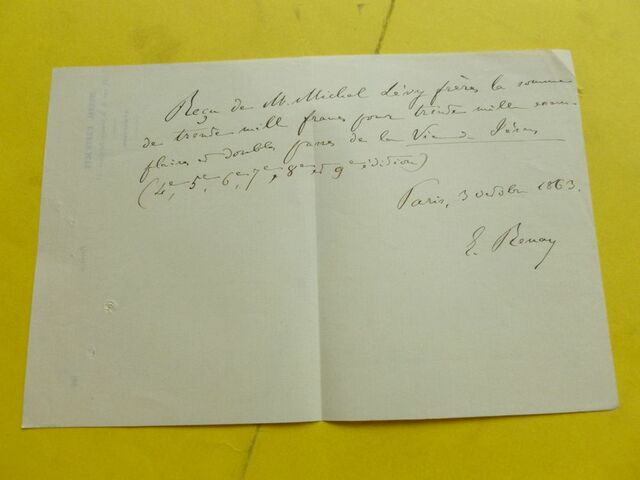 Reçu de M. Michel Lévy frères la somme
de trente mille francs pour trente mille exem-
plaires et doubles passes de la Vie de Jésus
(4e, 5e, 6e, 7e, 8e et 9e édition)
Paris, 3 octobre 1863.
E. Renan